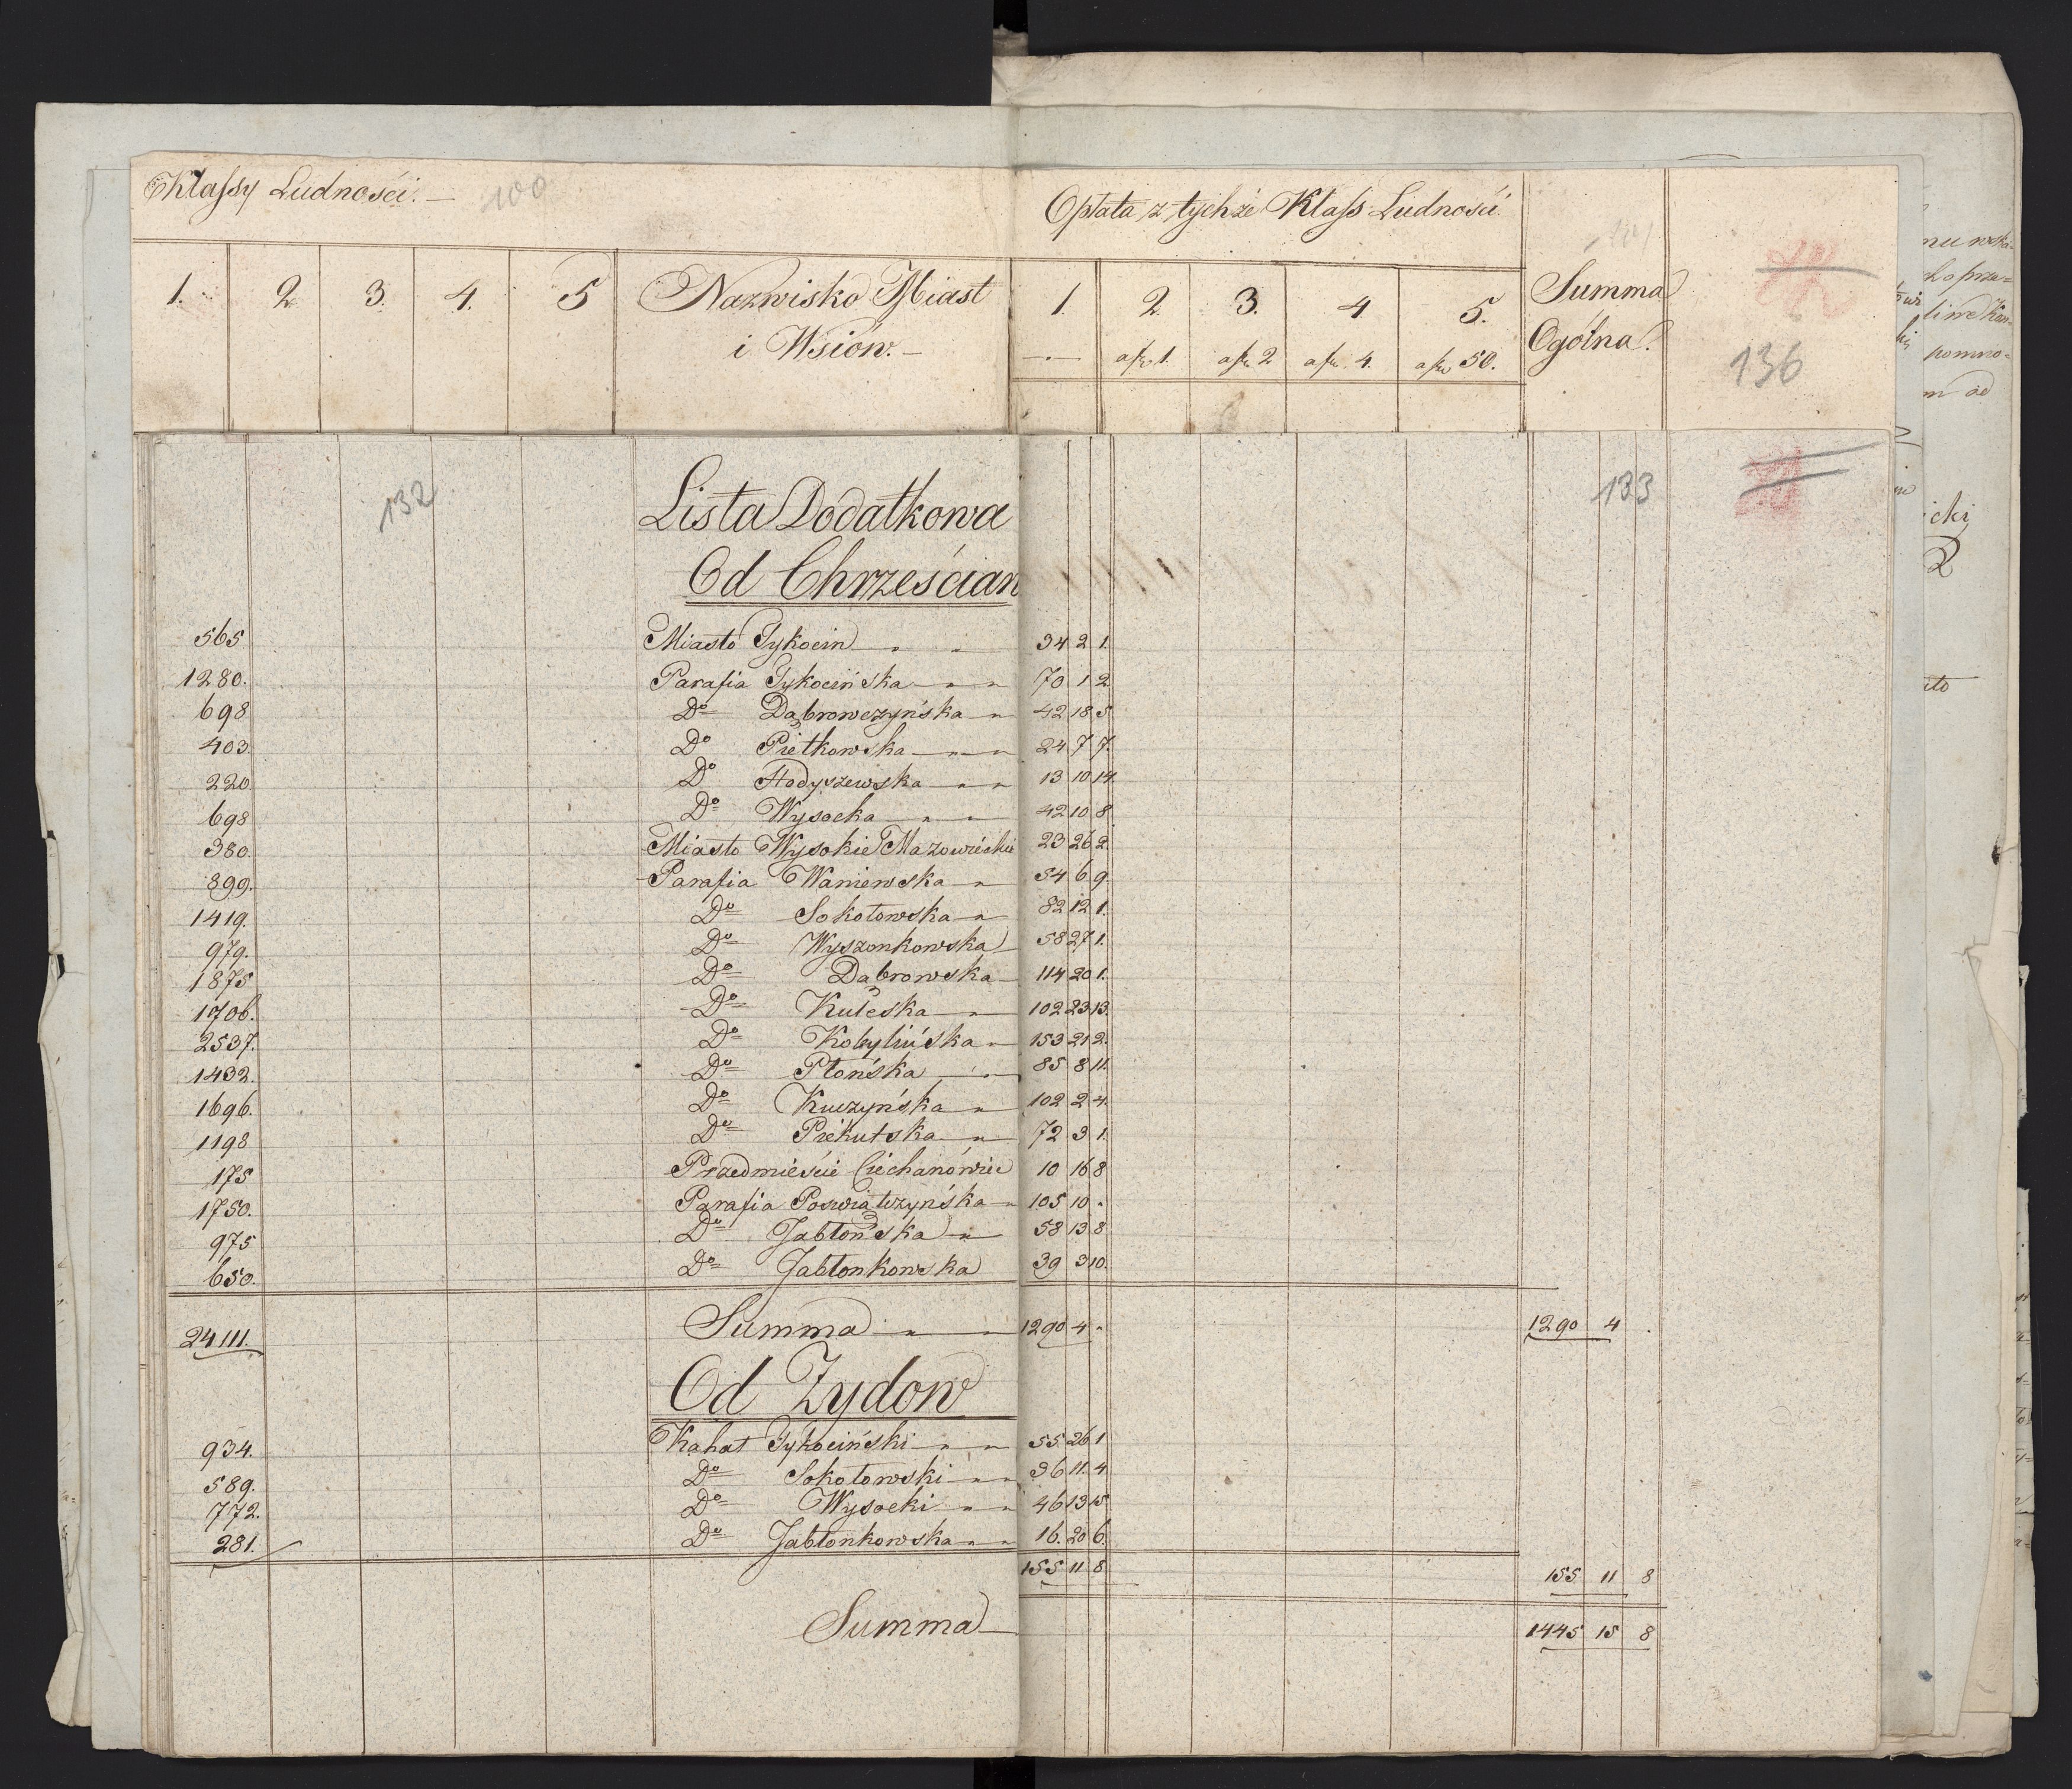 Klassy Ludności. 100
Opłata z tychże Klass Ludności.
1. 2. 3. 4. 5 Nazwisko Miast i Wsiów. 1. 2. 3. 4. 5. Summa Ogólna.
a fl. 1. a fl. 2 a fl. 4. a fl. 50.
136
132 133
Lista Dodatkowa
Od Chrześcian
565 Miasto Tykocin 34 2 1.
1280. Parafia Tykocińska 70 1 2
698 Do Dąbrowczyńska 42 18 5
403 Do Piętkowska 24 7 7.
220 Do Hodyszewska 13 10 14.
698 Do Wysocka 42 10 8
380. Miasto Wysokie Mazowieckie 23 26 2.
899. Parafia Waniewska 54 6 9.
1419. Do Sokołowska 82 12 1.
979. Do Wyszonkowska 58 27 1.
1875 Do Dąbrowska 114 20 1.
1706. Do Kuleska 102 23 13.
2537. Do Kobylińska 153 21 2.
1432. Do Płońska 85 8 11.
1696. Do Kuczyńska 102 2 4.
1198 Do Piekutska 72 3 1.
175 Przedmieście Ciechanówiec 10 16 8
1750. Parafia Poswiątczyńska 105 10 -
975 Do Jabłońska 58 13 8
650. Do Jabłonkowska 39 3 10.
24111. Summa 1290 4 - 1290 4 .
Od Zydow
934. Kahał Tykociński 55 26 1
589. Do Sokołowski 36 11. 4.
772. Do Wysocki 46 13 15
281. Do Jabłonkowska 16. 20 6.
155 11 8 155 11 8
Summa 1445 15 8